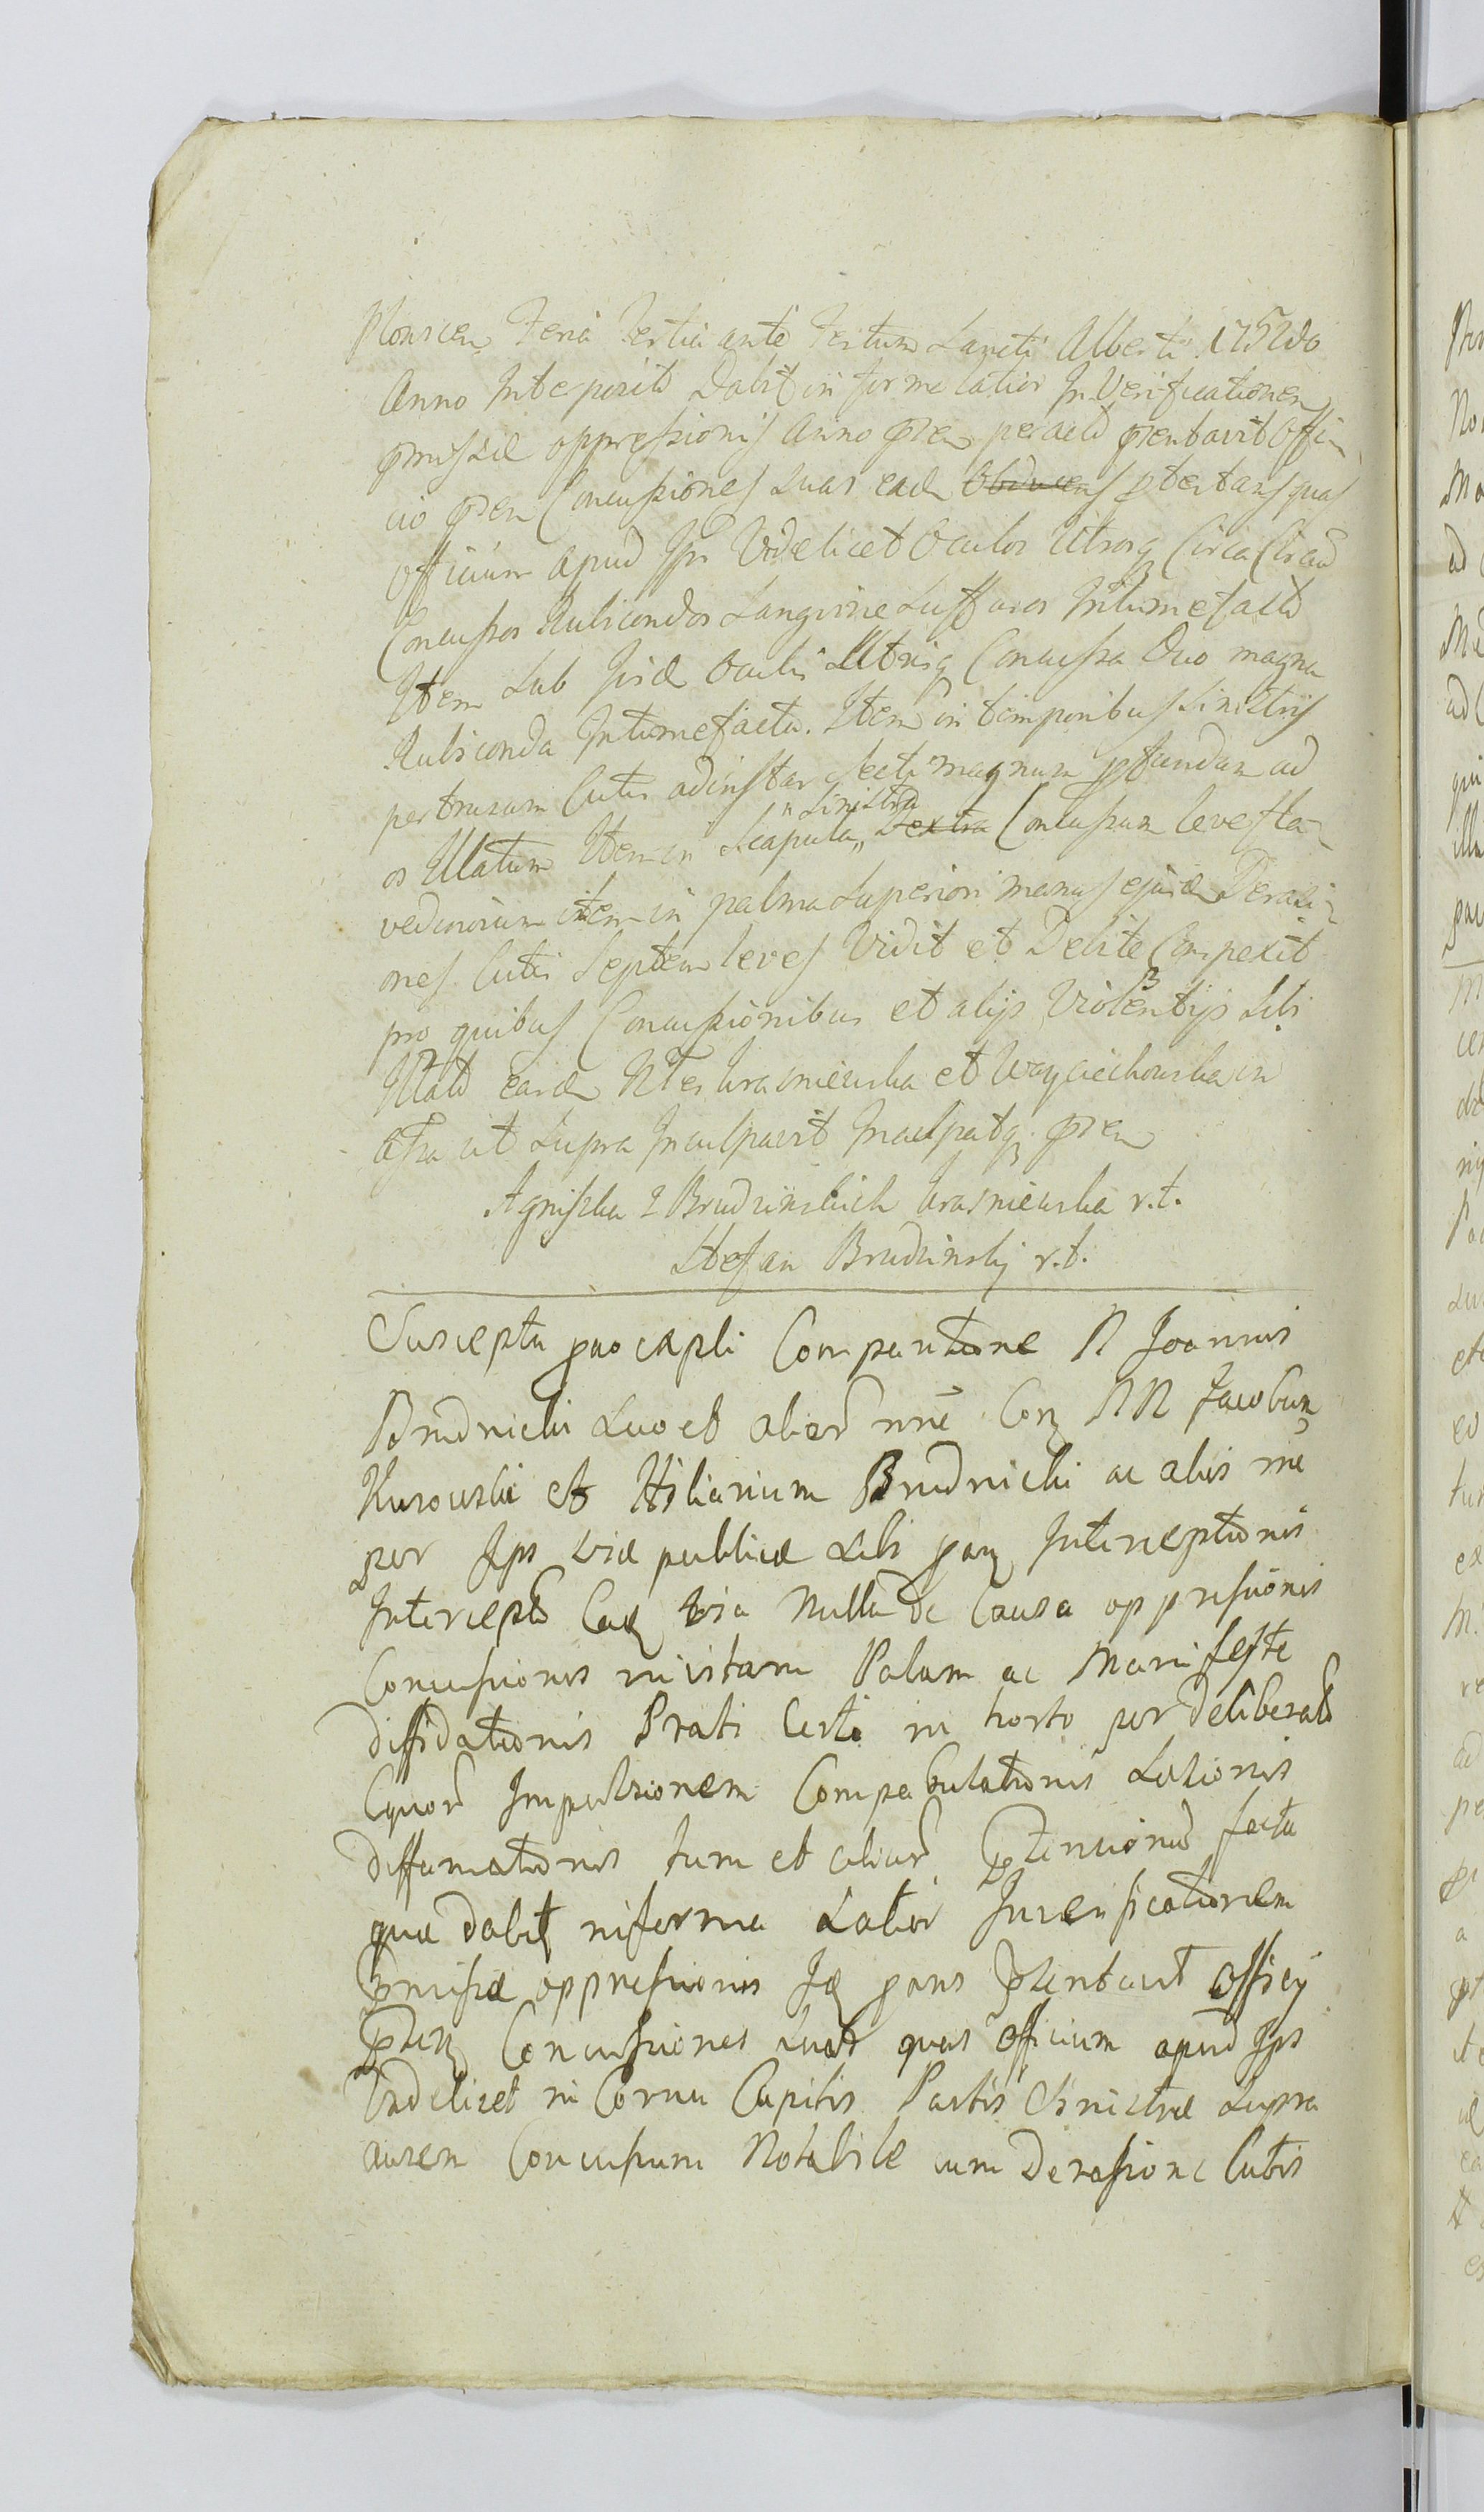 Feria tertia ante Festum Sancti Alberti 1752do
Anno Interposita Dabit in forma latior In Verificationem
pmissae oppressionis Anno pten peracta ptentavit Offi-
cio pten Concussiones suas eade Obducens ptestans quas
Officium apud Ips Videlicet Oculos Utrosq Circa
Concussos Rubicondos Sanguine Suffusos Intumefacto
Item Sub Oculis Utrisq Concussa Duo magna
Rubiconda Intumefacta. Item in temporibus Sinistris
pertrusum Cutis adinstar secti magnum pfundum ad
os Illatum Item in Scapula Dextra " Sinistra Concussum leve fla-
vedinosum item in palma Superiori manus ejusde Derasi-
ones Cutis Septem leves Vidit et Debite Conspexit
pro quibus Concussionibus et alijs Violentijs Sibi
Illato easde Krasniewska et Woyciechowska in
ut Supra Inculpavit Inculpatq pten
Agniszka z Brudzinskich Krasniewska r.t.
Stefan Brudzinsky r.t.
Suscepta Comparitione N Joannis
Brudnicki Suo et alior nne Con NN Jacobum
Kurowski et Hilarium Brudnicki ac alios
per Ips viae publicae Sibi Interceptionis
Intercepto Eaq via Nulla de Causa oppressionis
Concussionis in vitam Palam ac Manifeste
diffidationis Prati Certi in horto per deliberato
Equor Impulsionem Compabulationis Laesionis
diffamationis tum et alior ptensiona facta
quae dabit in forma Latior In verificationem
pmissae oppressionis Id pans ptentavit Officij
pten Concussiones suas quas Officium apud Ips
Videlicet in Cornu Capitis Partis Sinistrae Supra
aurem Concussum Notabile cum Derasione Cutis